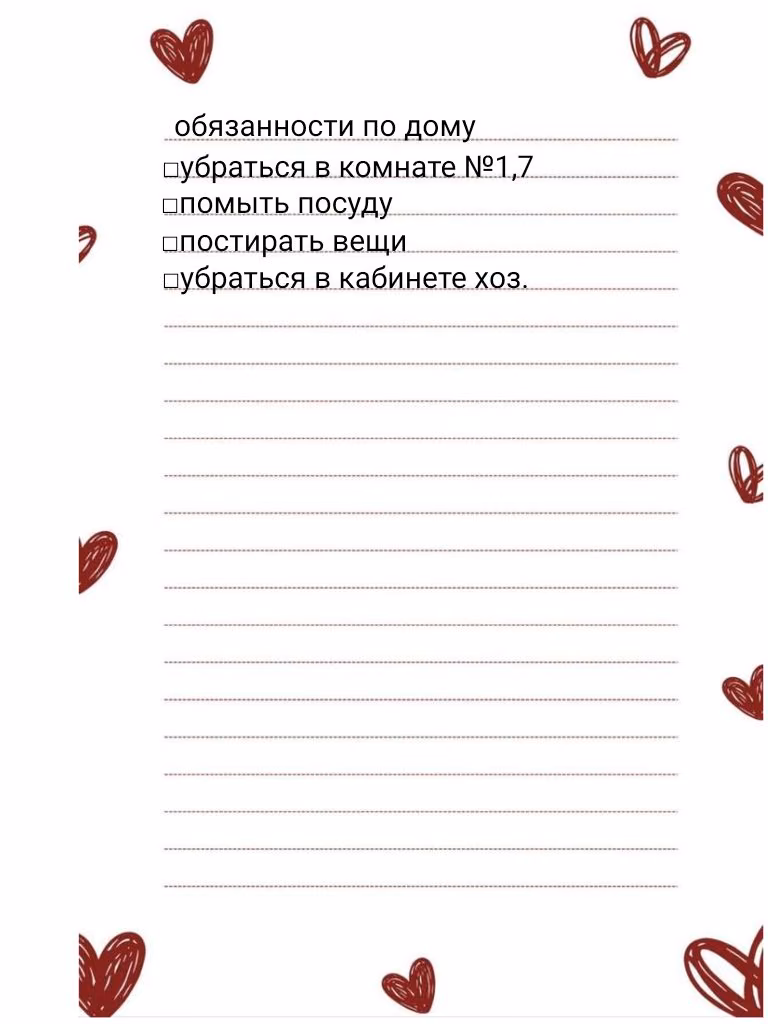 обязанности по дому
□убраться в комнате №1,7
□помыть посуду
□постирать вещи
□убраться в кабинете хоз.